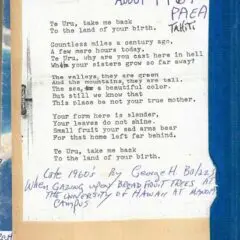 ABOUT 1969
PAEA
TAHITI
Te Uru, take me back
To the land of your birth.
Countless miles a century ago,
A few mere hours today,
Te Uru, why are you cast here in hell
When your sisters grow so far away?
The valleys, they are green
And the mountains, they are tall.
The sea, a beautiful color.
But still we know that
This place be not your true mother.
Your form here is slender,
Your leaves do not shine.
Small fruit your sad arms bear
For that home left far behind.
Te Uru, take me back
To the land of your birth.
Late 1960's By George H Balazs
When gazing upon breadfruit trees at
the University of Hawaii at Manoa
Campus